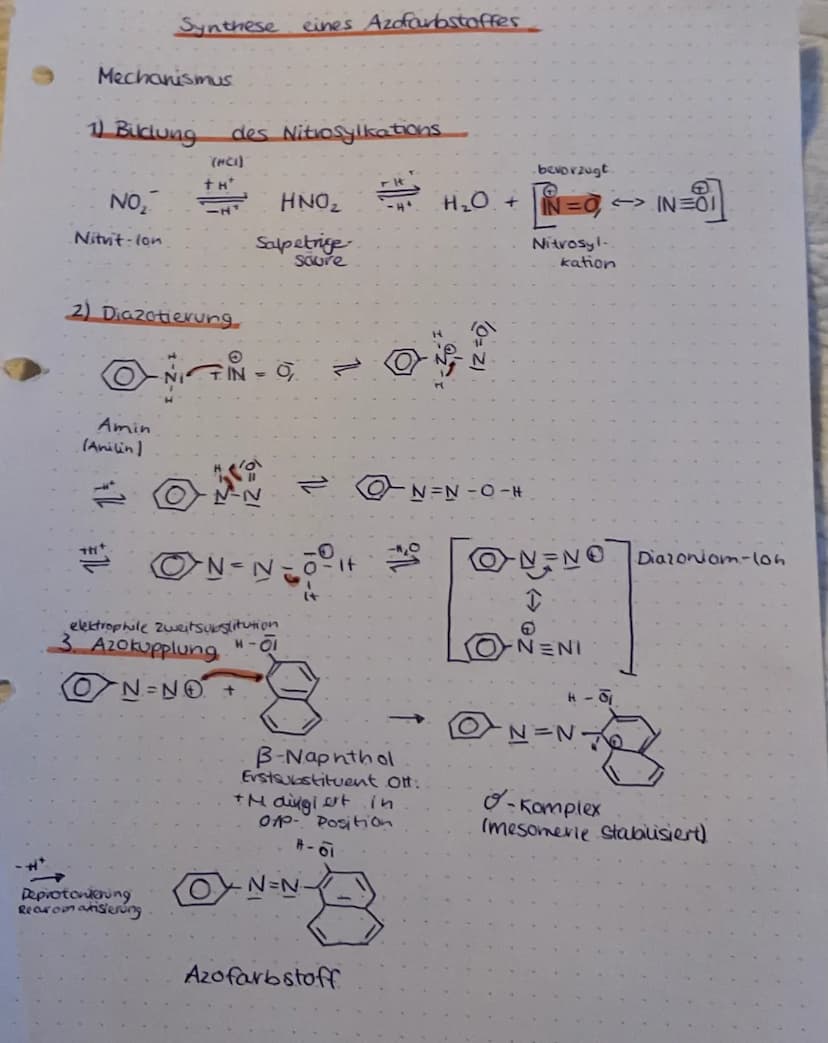 Synthese eines Azofarbstoffes
Mechanismus
1) Bildung des Nitrosylkations
(HCl) bevorzugt
NO₂⁻ +H⁺ ⇌ −H⁺ HNO₂ +H⁺ ⇌ −H⁺ H₂O + [|N=O⟩ ⊕ <-> |N≡O| ⊕]
Nitrit-Ion Salpetrige- Nitrosyl-
säure kation
2) Diazotierung
H H (O)
N| + |N = O ⊕ ⇌ N ⊕ - N
H H
Amin
(Anilin)
-H⁺ H (O)
⇌ N-N ⇌ N=N-O-H
+H⁺ ⇌ N=N-O-H ⊕ -H₂O ⇌ N=N⊕ Diazonium-Ion
H
⊕
N≡N|
elektrophile Zweitsubstitution
3. Azokupplung H-O|
N=N⊕ +
→ N=N H-O| ⊕
β-Naphthol
Erstsubstituent OH:
+M dirigiert in
O/P- Position
σ-Komplex
(mesomerie stabilisiert)
-H⁺ →
Deprotonierung
Rearomatisierung
H-O|
N=N
Azofarbstoff